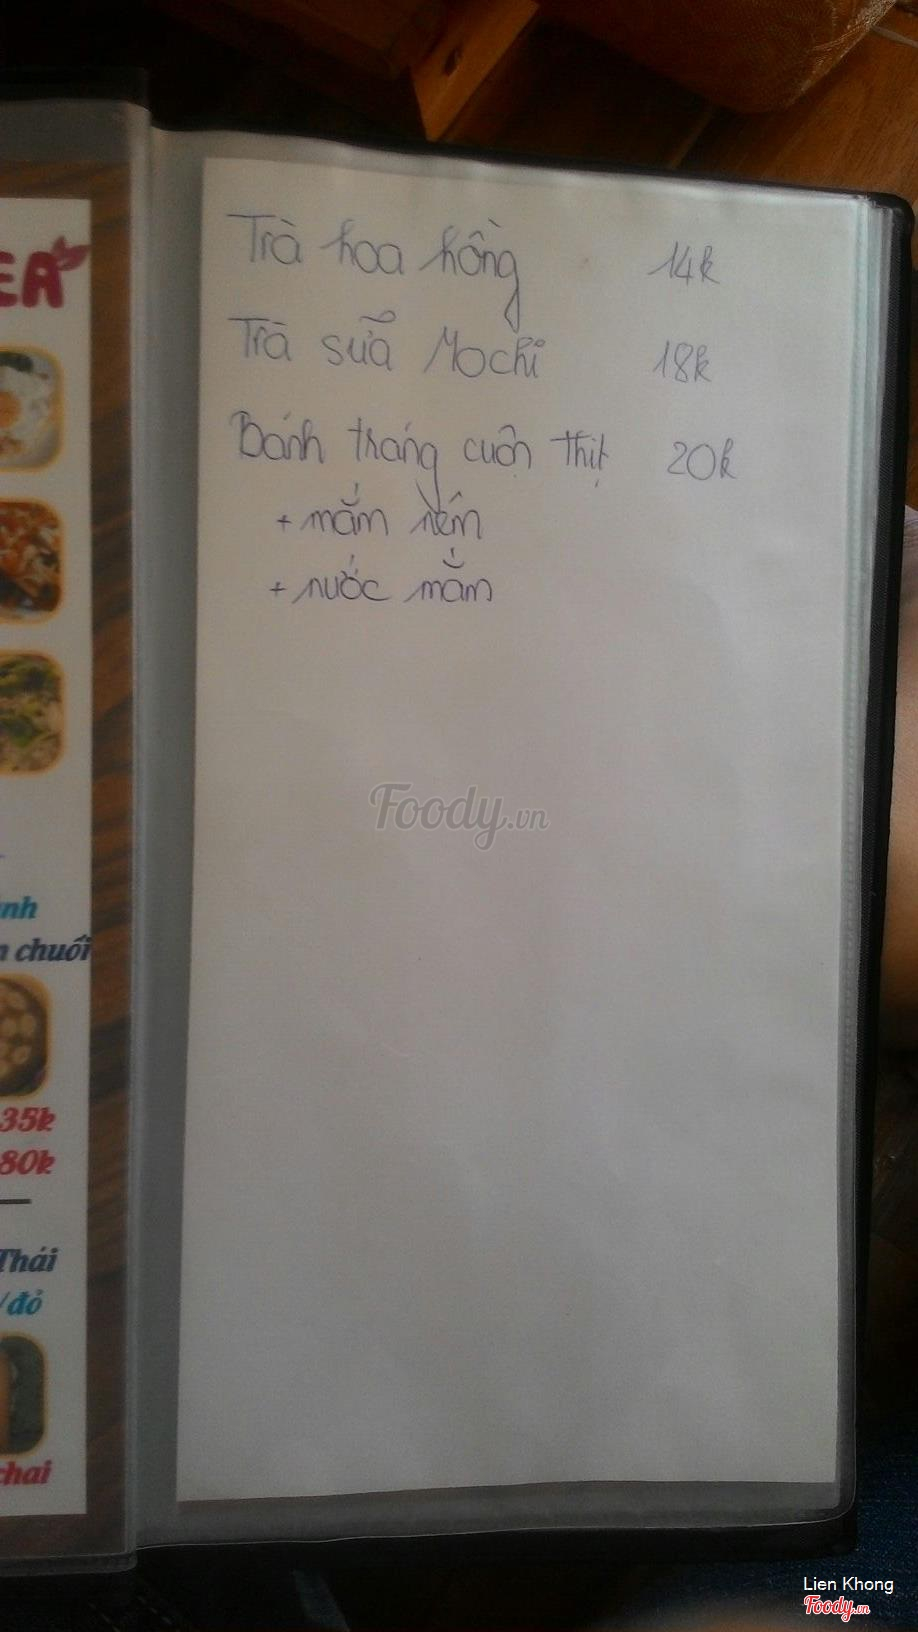 Trà hoa hồng 14k
Trà sữa Mochi 18k
Bánh tráng cuốn thịt 20k
+ mắm nêm
+ nước mắm
Foody.vn
EA
ánh
chuối
35k
80k
Thái
/đỏ
chai
Lien Khong
Foody.vn